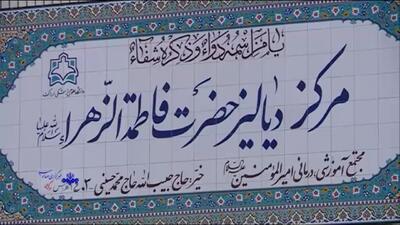 یا من اسمه دواء و ذکره شفاء
مرکز دیالیز حضرت فاطمة الزهراء
سلام الله علیها
مجتمع آموزشی، درمانی امیرالمومنین
خیر: حاج حبیب الله حاج محمد حسینی